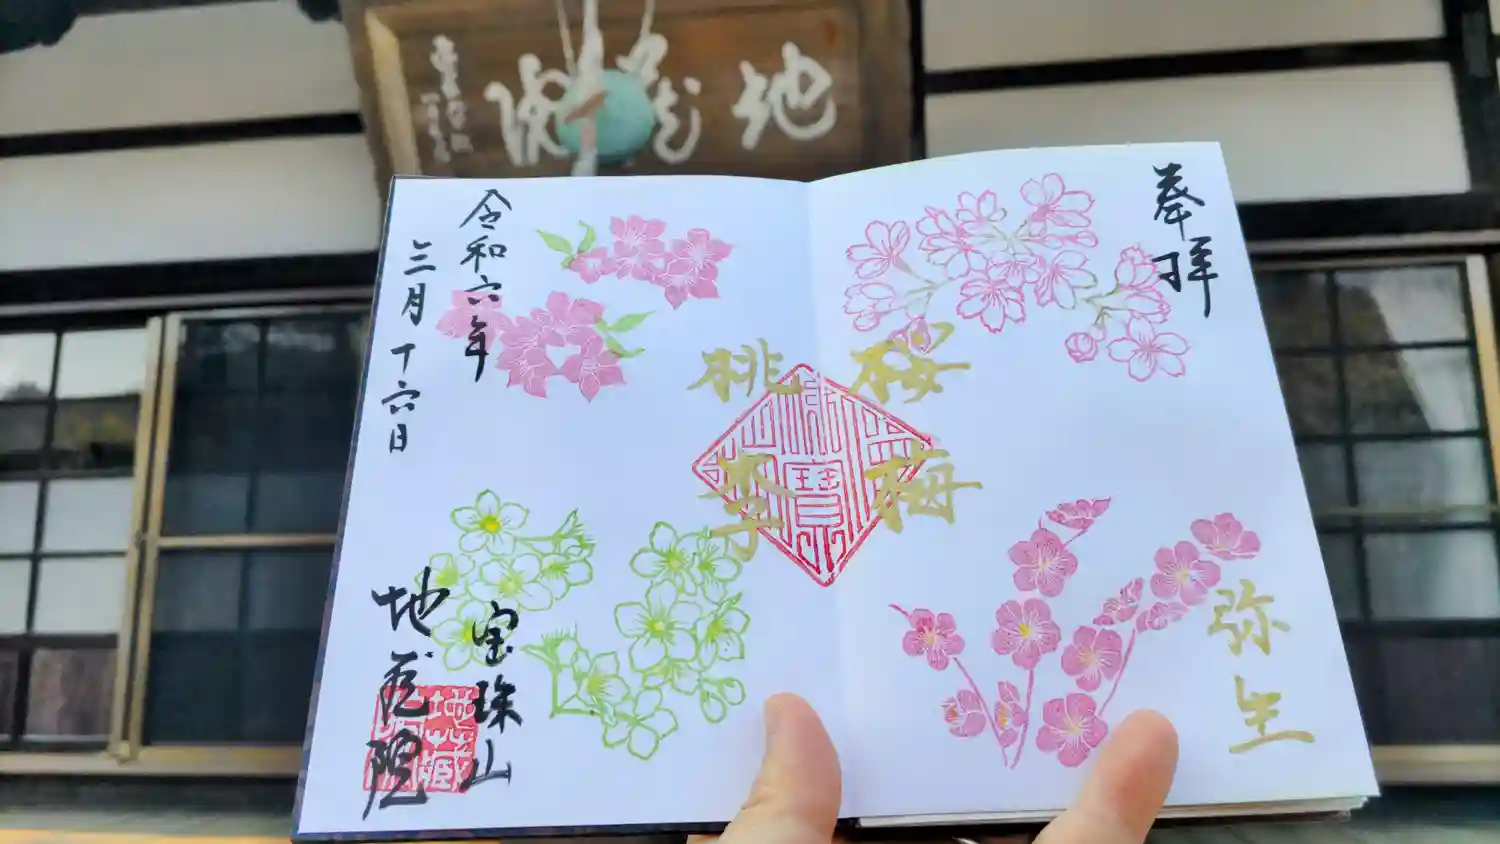 地蔵院
奉拝
桜 梅
桃 李
弥生
令和六年
三月十六日
宝珠山
地蔵院
地蔵